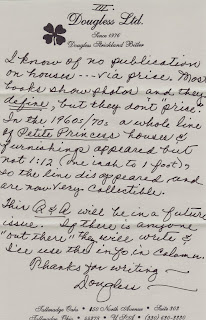 Dougless Ltd.
Since 1976
Douglass Strickland Bitler
I know of no publication
on houses --- via price. Most
books show photos and they
define, but they don't "price."
In the 1960s/70s a whole line
of Petite Princess houses &
furnishings appeared but
not 1:12 (one inch to 1-foot),
so the line disappeared and
are now very collectible.
This Q & A will be in a future
issue. If there is anyone
"out there" they will write &
I'll use the info in column.
Thanks for writing —
Douglass
Tallmadge Oaks • 155 North Avenue • Suite 203
Tallmadge, Ohio 44278 • USA • (330)